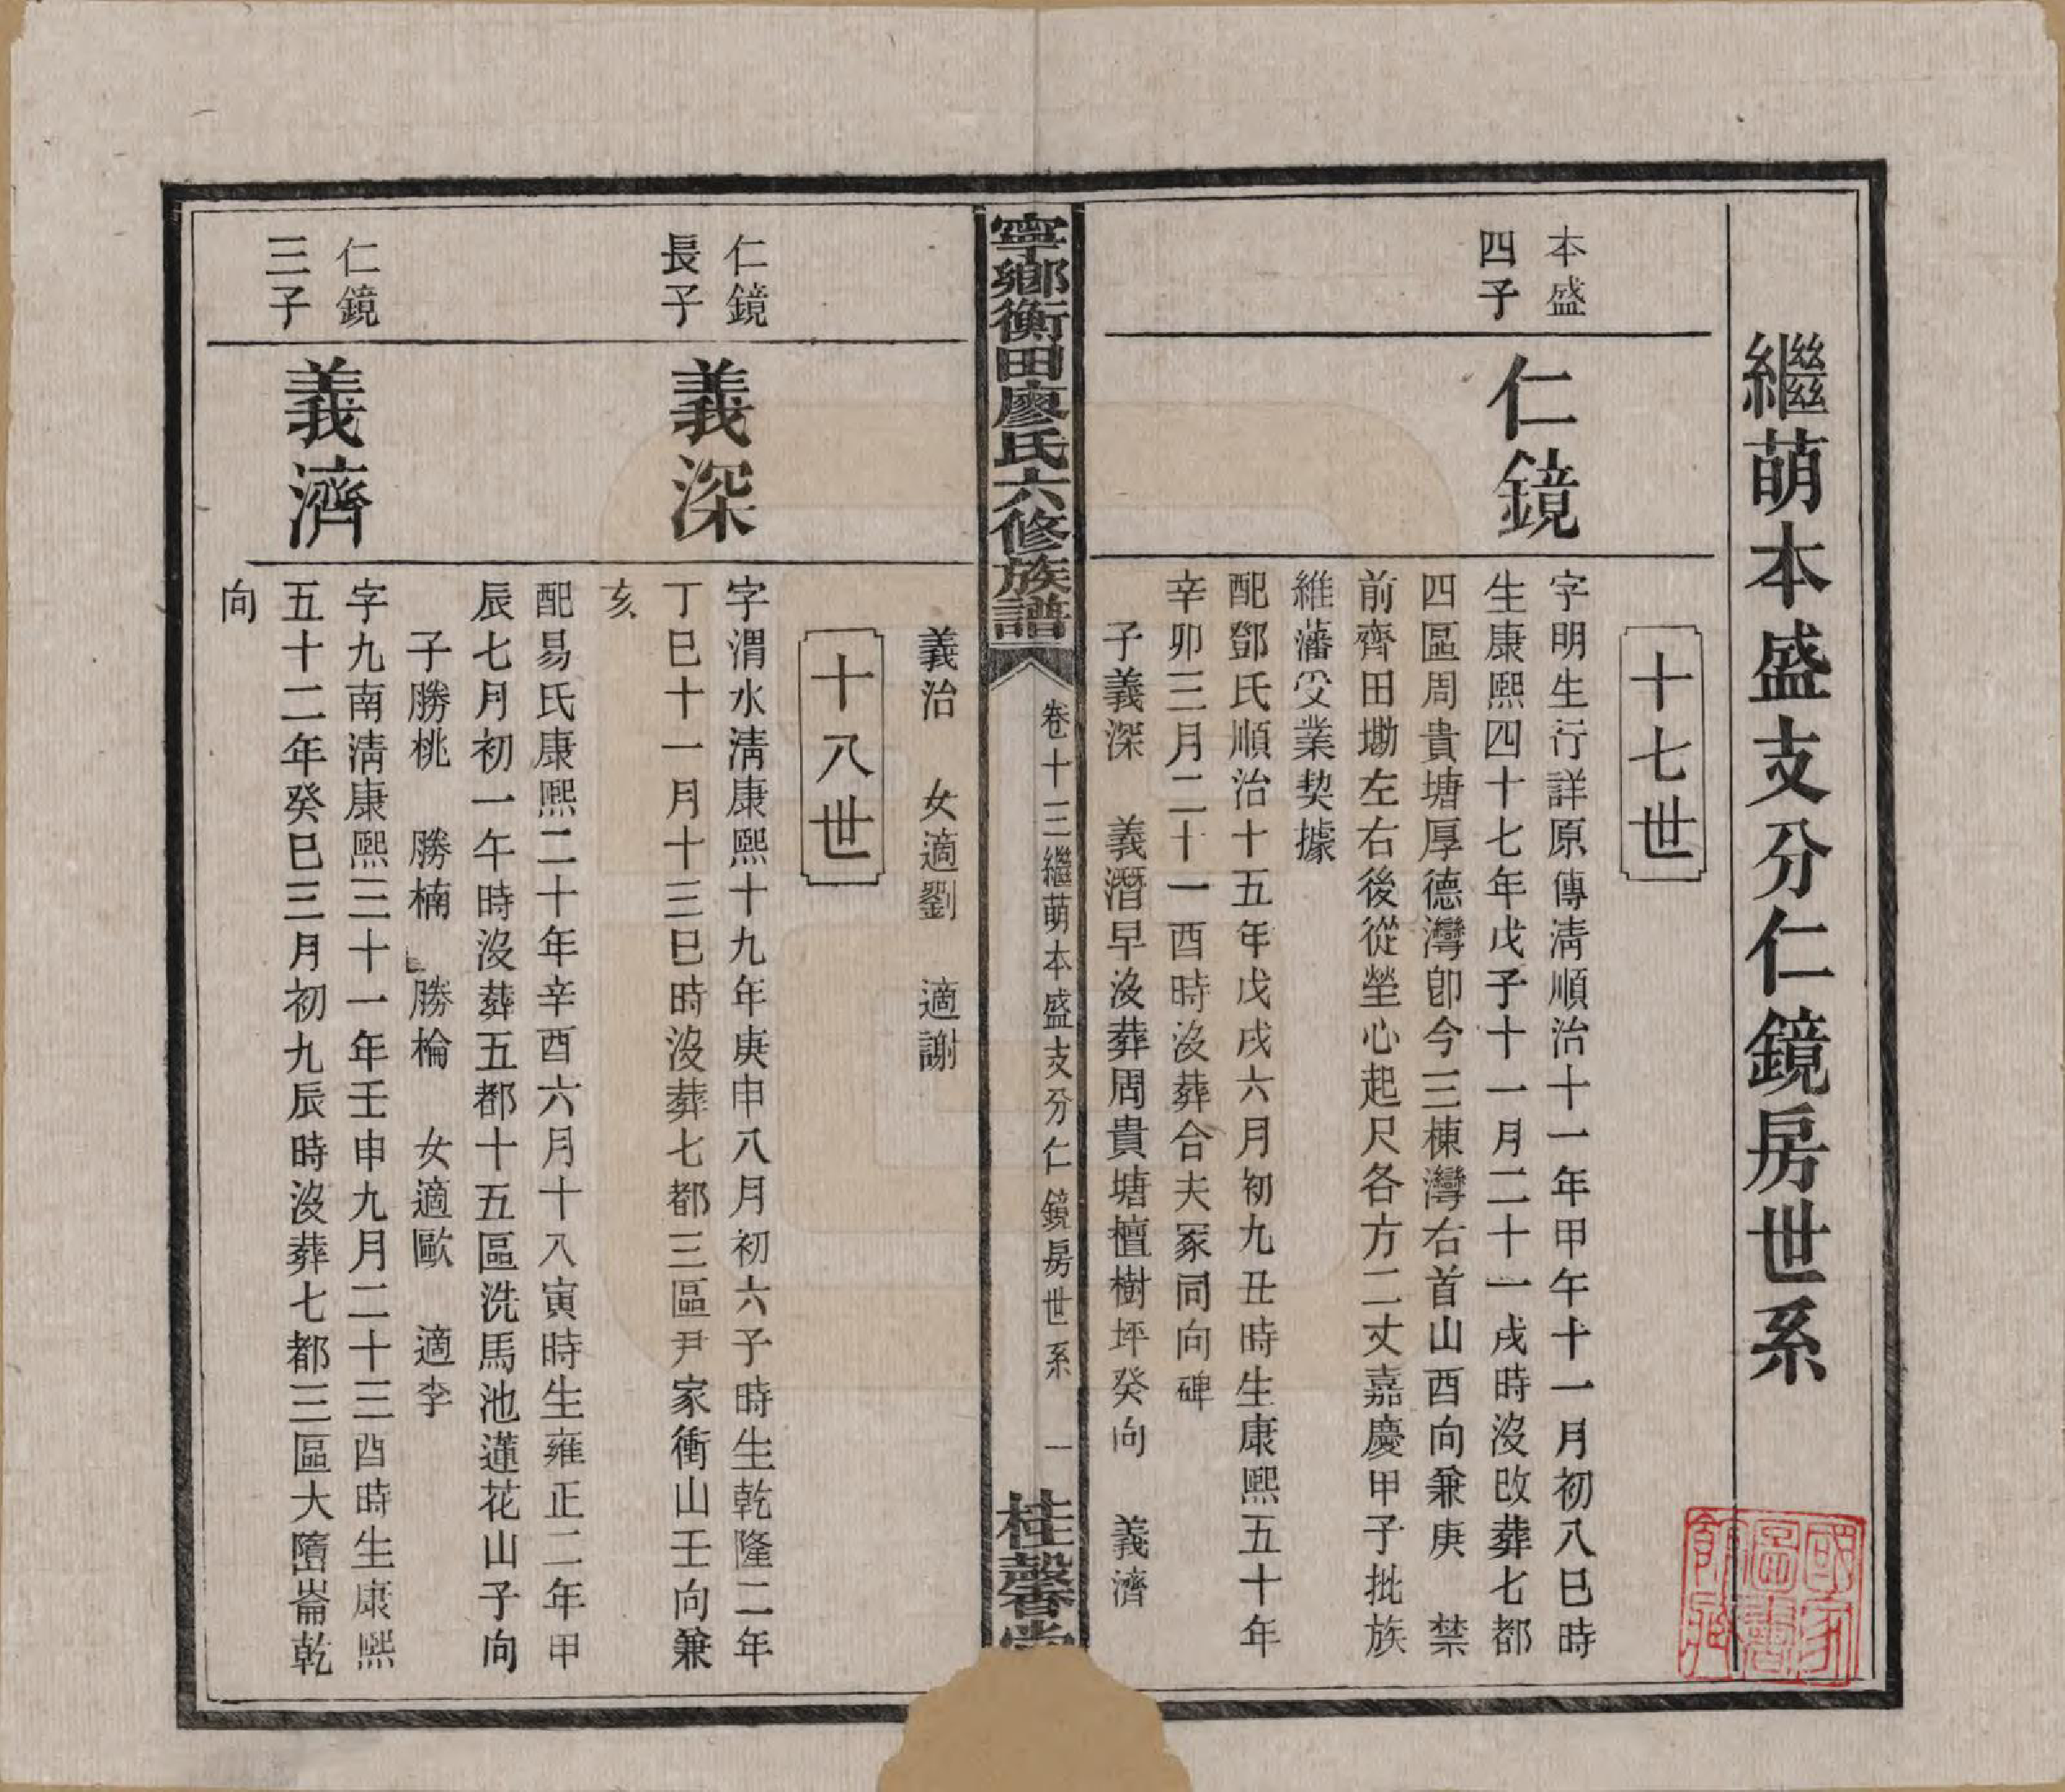 繼萌本盛支分仁鏡房世系
十七世
本盛
四子
仁鏡
字明生行詳原傳淸順治十一年甲午十一月初八巳時
生康熙四十七年戊子十一月二十一戌時沒改葬七都
四區周貴塘厚德灣卽今三棟灣右首山酉向兼庚 禁
前齊田墈左右後從塋心起尺各方二丈嘉慶甲子批族
維藩受業契據
配鄧氏順治十五年戊戌六月初九丑時生康熙五十年
辛卯三月二十一酉時沒葬合夫冢同向碑
子義深 義潛早沒葬周貴塘檀樹坪癸向 義濟
寧鄉衡田廖氏六修族譜
卷十三繼萌本盛支分仁鏡房世系 一
桂馨堂
義治 女適劉 適謝
十八世
仁鏡
長子
義深
字渭水淸康熙十九年庚申八月初六子時生乾隆二年
丁巳十一月十三巳時沒葬七都三區尹家衝山壬向兼
亥
配易氏康熙二十年辛酉六月十八寅時生雍正二年甲
辰七月初一午時沒葬五都十五區洗馬池蓮花山子向
子勝桃 勝楠 勝棆 女適歐 適李
仁鏡
三子
義濟
字九南淸康熙三十一年壬申九月二十三酉時生康熙
五十二年癸巳三月初九辰時沒葬七都三區大墮崙乾
向
國家
圖書
館藏